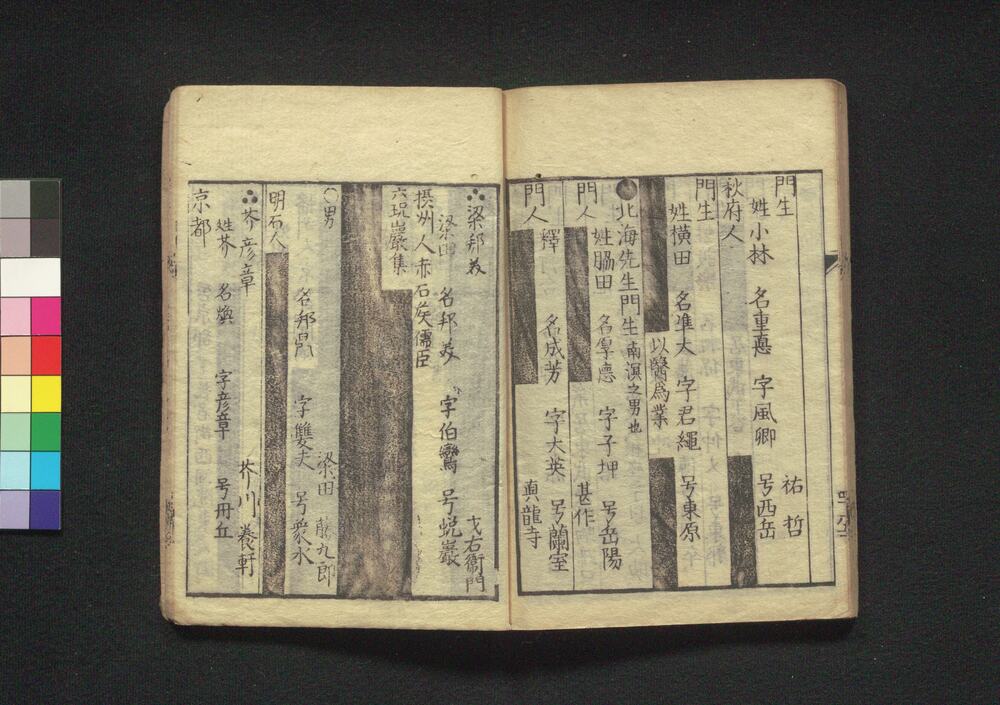 門生
姓小林　名重悳　字風卿　号西岳　祐哲
秋府人
門生
姓横田　名準大　字君縄　号東原
以醫為業
北海先生門生　南溟之男也
門人　姓脇田　名厚應　字子押　号岳陽　甚作
門人　釋　名成芳　字大英　号蘭室　真龍寺
梁邦美
梁田　名邦美　字伯鸞　号蛻巖　才右衛門
摂州人　赤石矦儒臣
六玩巖集
〇男　梁田　藤九郎
名邦鼎　字雙夫　号衆水
明石人
芥彦章　芥川　養軒
姓芥　名煥　字彦章　号丹丘
京都